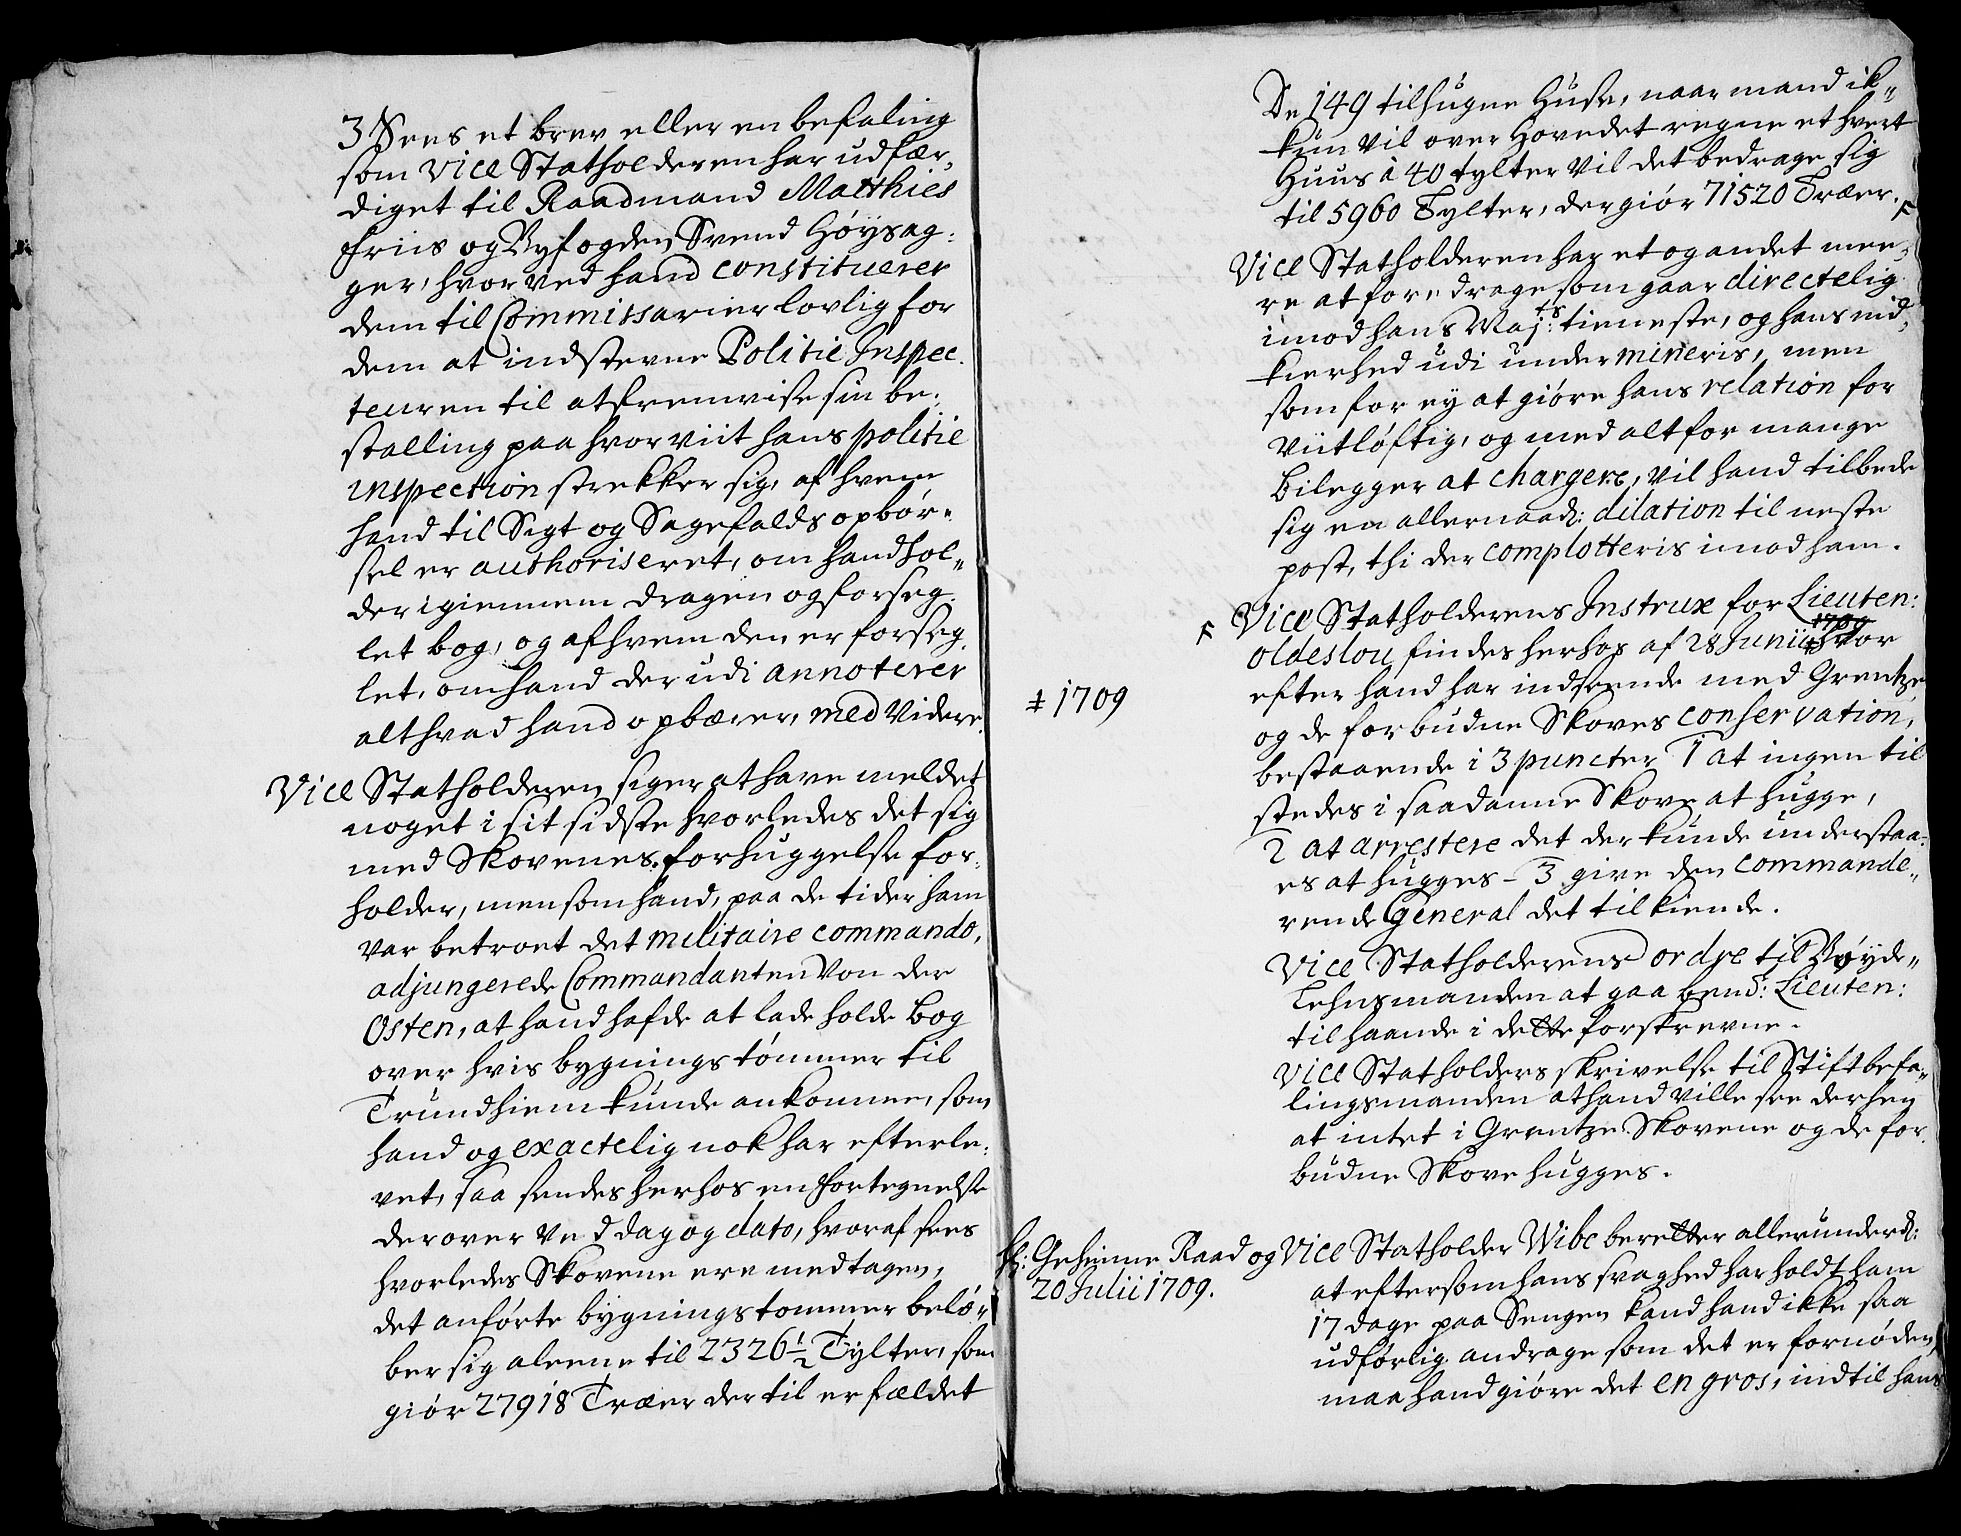 3 Sees et brev eller en befaling
som Vice Statholderen har udfær-
diget til Raadmand Matthies
Friis og Byfogden Svend Høysag:
ger, hvorved hand constituerer
dem til Commissarier lovlig for
dem at indstevne Politie Inspec.
teuren til at fremvise sin be:
stalling paa hvor viit hans politie
inspection strekker sig, af hvem
hand til Sigt og Sagefalds opbør-
sel er authoriseret, om hand hol-
der igiennem dragen og forseg.
let bog, og af hvem den er forseg.
let, om hand der udi annoterer
alt hvad hand opbærer, med Videre.
Vice Statholderen siger at have meldet
noget i sit sidste hvorledes det sig
med Skovenes forhuggelse for:
holder, men som hand, paa de tider ham
var betroet det militaire commando,
adjungerede Commandanten Von der
Osten, at hand hafde at lade holde Bog
over hvis bygnings tømmer til
Trundhiem kunde ankomme, som
hand og exactelig nok har efterle:
vet, saa sendes herhos en fortegnelse
derover ved dag og dato, hvoraf sees
hvorledes Skovene ere medtagen,
det anførte bygnings tømmer belø-
ber sig aleene til 2326½ Tylter, som
giør 27918 Træer dertil er fældet
De 149 tilhugne Huse, naar mand ik-
kun vil over Hovedet regne et hvert
Huus á 40 tylter vil det bedrage sig
til 5960 Tylter, der giør 71520 Træer. F
Vice Statholderen har et og andet mee-
re at foredrage som gaar directelig
imod hans Maj:ts tieneste, og hans nid-
kierhed udi undermineris, men
som for ey at giøre hans relation for
Viitløftig, og med alt for mange
Bilegger at chargere, vil hand tilbede
sig en allernaad: dilation til neste
post, thi der complotteris imod ham.
F Vice Statholderens Instrux for Lieuten:
1709
Oldeslou findes herhos af 28 Junii ‡ hvor
‡ 1709
efter hand har indseende med Grentze
og de forbudne Skoves conservation,
bestaaende i 3 puncter 1 at ingen til
stedes i saadanne Skove at hugge,
2 at arrestere det der kunde understaa-
es at hugges - 3 give den commande-
rende General det tilkiende.
Vice Statholderens ordre til Bøyde-
Lehnsmanden at gaa bend: Lieuten:
til haande i dette forskrevne.
Vice Statholders skrivelse til Stiftbefa-
lingsmanden at hand ville see derhen
at intet i Grentze Skovene og de for.
budne Skove hugges.
H: Geheime Raad og Vice Statholder Wibe beretter allerunderd:
20 Julii 1709.
at eftersom hans svaghed har holdt ham
17 dage paa Sengen kand hand ikke saa
udførlig andrage som det er fornøden,
maa hand giøre det en gros, indtil hans